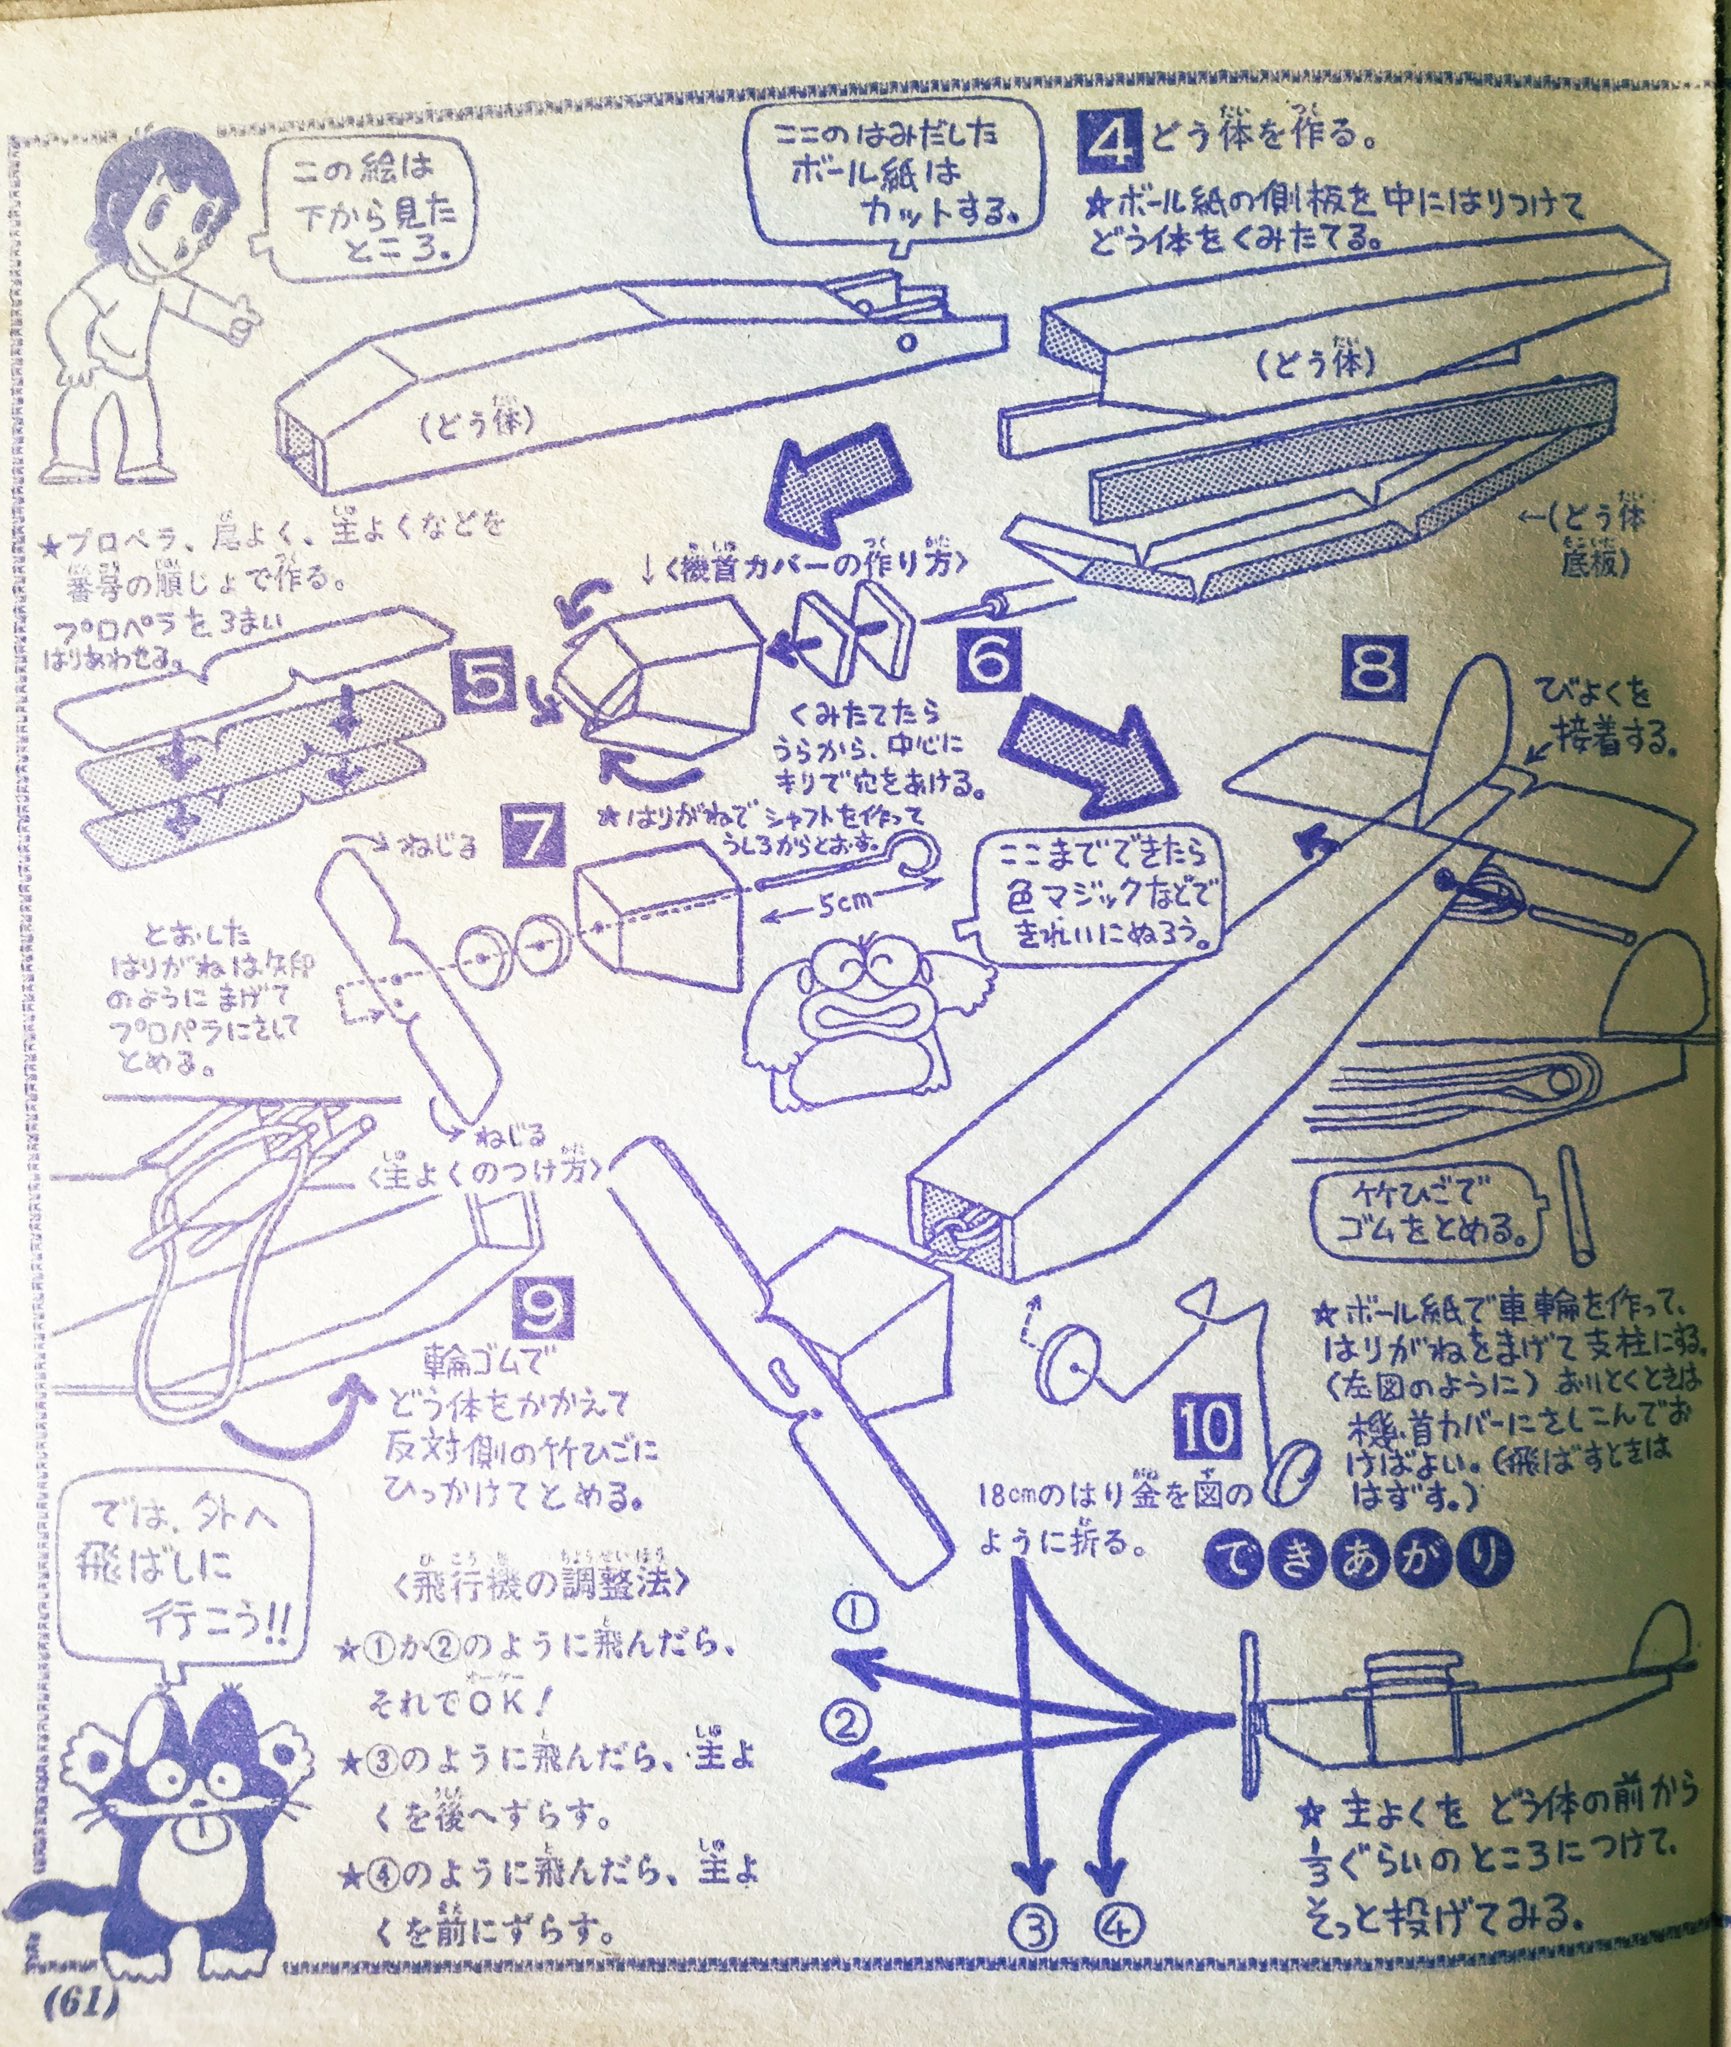 この絵は
下から見た
ところ。
ここのはみだした
ボール紙は
カットする。
4 どう体を作る。
★ボール紙の側板を中にはりつけて
どう体をくみたてる。
(どう体)
(どう体)
←(どう体
底板)
★プロペラ、尾よく、主よくなどを
番号の順じょで作る。
プロペラを3まい
はりあわせる。
5
↓〈機首カバーの作り方〉
6
くみたてたら
うらから、中心に
きりで穴をあける。
7
★はりがねでシャフトを作って
うしろからとおす。
←5cm→
ねじる
とおした
はりがねは矢印
のようにまげて
プロペラにさして
とめる。
ねじる
8
びよくを
接着する。
ここまでできたら
色マジックなどで
きれいにぬろう。
竹ひごで
ゴムをとめる。
〈主よくのつけ方〉
9
輪ゴムで
どう体をかかえて
反対側の竹ひごに
ひっかけてとめる。
10
18cmのはり金を図の
ように折る。
★ボール紙で車輪を作って、
はりがねをまげて支柱にする。
(左図のように)おいとくときは
機首カバーにさしこんでお
けばよい。(飛ばすときは
はずす。)
できあがり
では、外へ
飛ばしに
行こう!!
〈飛行機の調整法〉
★①か②のように飛んだら、
それでOK!
★③のように飛んだら、主よ
くを後へずらす。
★④のように飛んだら、主よ
くを前にずらす。
①
②
③
④
★主よくをどう体の前から
1/3ぐらいのところにつけて、
そっと投げてみる。
(61)